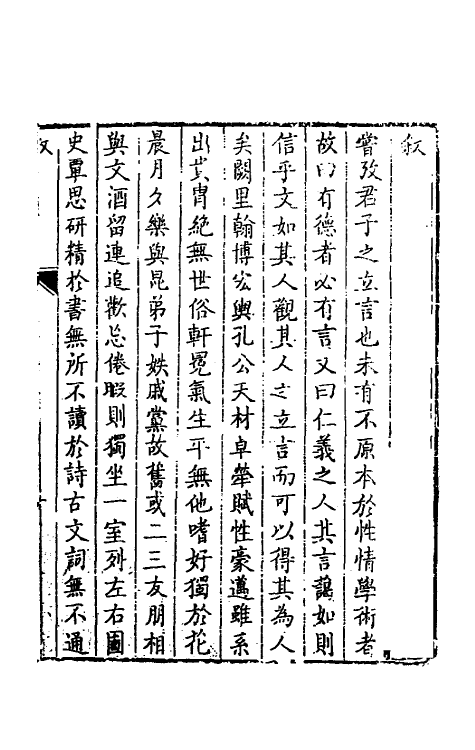 叙
嘗攷君子之立言也未有不原本於性情學術者
故曰有德者必有言又曰仁義之人其言藹如則
信乎文如其人觀其人之立言而可以得其為人
矣闕里翰博宏輿孔公天材卓犖賦性豪邁雖系
出貴胄絕無世俗軒冕氣生平無他嗜好獨於花
晨月夕樂與昆弟子姪戚黨故舊或二三友朋相
與文酒留連追歡忘倦暇則獨坐一室列左右圖
史覃思研精於書無所不讀於詩古文詞無不通
叙